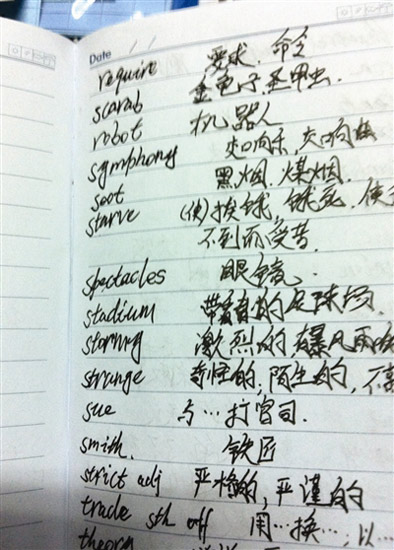 Date / /
require 要求、命令
scarab 金龟子,圣甲虫.
robot 机器人
symphony 交响乐,交响
soot 黑烟.煤烟.
starve (使)挨饿,饿死,使
不到而受苦.
spectacles 眼镜.
stadium 的足球场.
stormy 激烈的,暴风雨的
strange 奇怪的,陌生的,不
sue 与…打官司.
smith. 铁匠
strict adj 严格的,严谨的
trade sth off 用…换…,以…
theorem